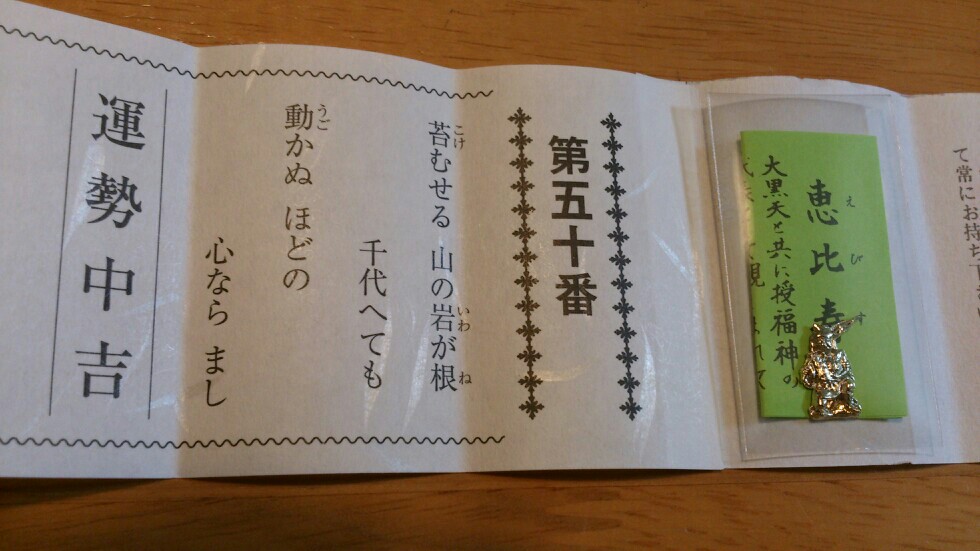 て常にお持ち
恵比寿
えびす
大黒天と共に授福神の
第五十番
苔むせる 山の岩が根
こけ
いわ
ね
千代へても
動かぬ ほどの
うご
心なら まし
運勢中吉